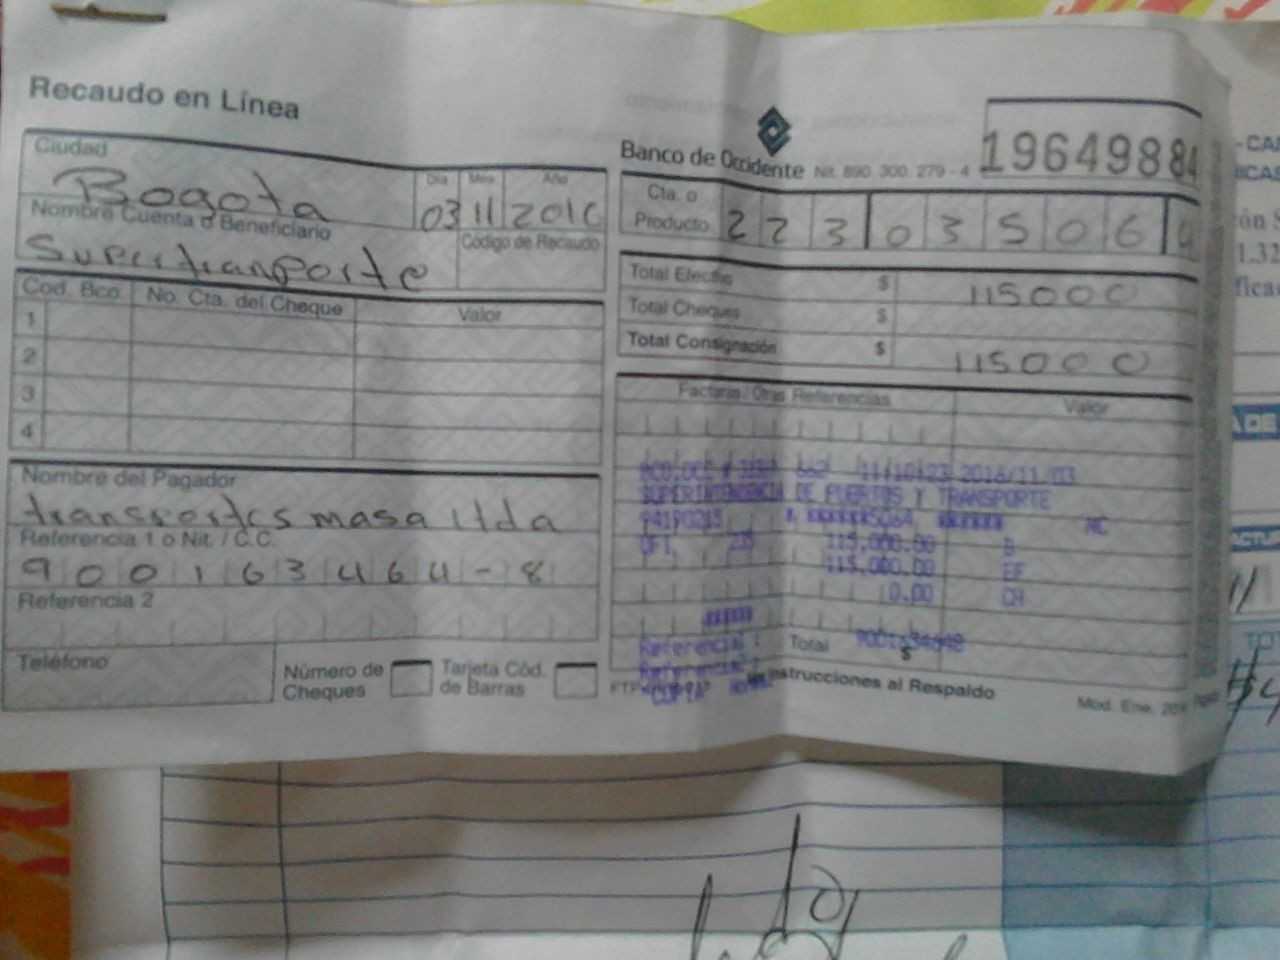 Recaudo en Línea
Banco de Occidente Nit. 890. 300. 279 - 4
19649884
Ciudad
Bogota
Día Mes Año
03 11 2016
Nombre Cuenta o Beneficiario
Supertransporte
Código de Recaudo
Cta. o Producto 2 2 3 0 3 5 0 6 4
Total Efectivo $ 115000
Total Cheques $
Total Consignación $ 115000
Cod. Bco. No. Cta. del Cheque Valor
1
2
3
4
Facturas / Otras Referencias Valor
11:10:23 2016/11/03
SUPERINTENDENCIA DE PUERTOS Y TRANSPORTE
OFI. 115,000.00
115,000.00 EF
0.00 CH
Nombre del Pagador
transportes masa ltda
Referencia 1 o Nit. / C.C.
9 0 0 1 6 3 4 6 4 - 8
Referencia 2
Teléfono
Número de Cheques
Tarjeta Cód. de Barras
Total $
Referencia1 : 9001634648
Referencia2 :
*COPIA*
Instrucciones al Respaldo
Mod. Ene.